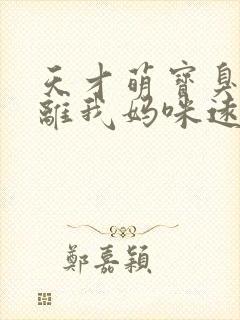 天才萌寶臭
離我媽咪遠
鄭嘉穎